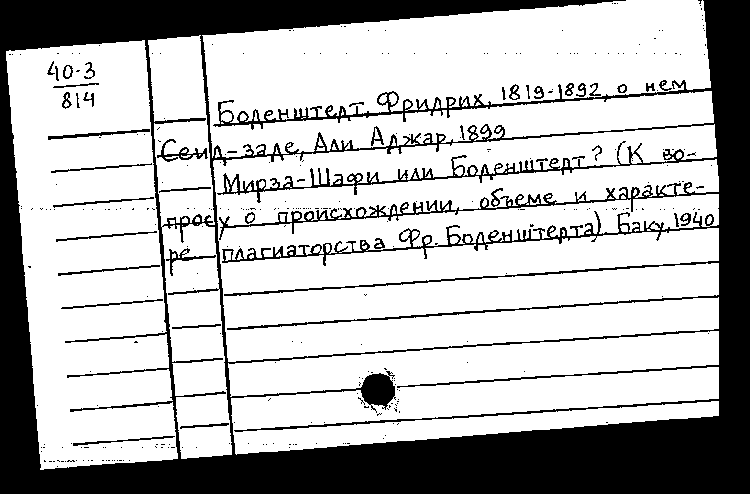 40-3
814
Боденштедт, Фридрих, 1819-1892, о нем
Сеид-заде, Али Аджар, 1899
Мирза-Шафи или Боденштедт? (К во-
просу о происхождении, объеме и характе-
ре плагиаторства Фр. Боденштедта). Баку, 1940